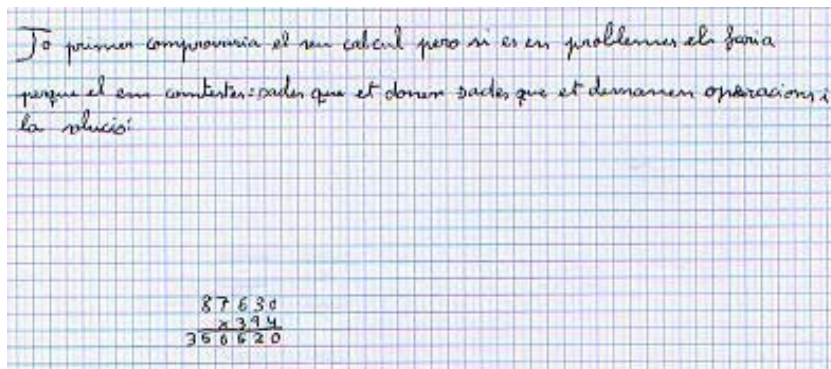 Jo primer comprovaria el seu calcul pero si es en problemes els faria
perque el em contestes: dades que et donen dades que et demanen operacions i
la solucio:
8 7 6 3 0
x 3 9 4
3 5 0 6 2 0